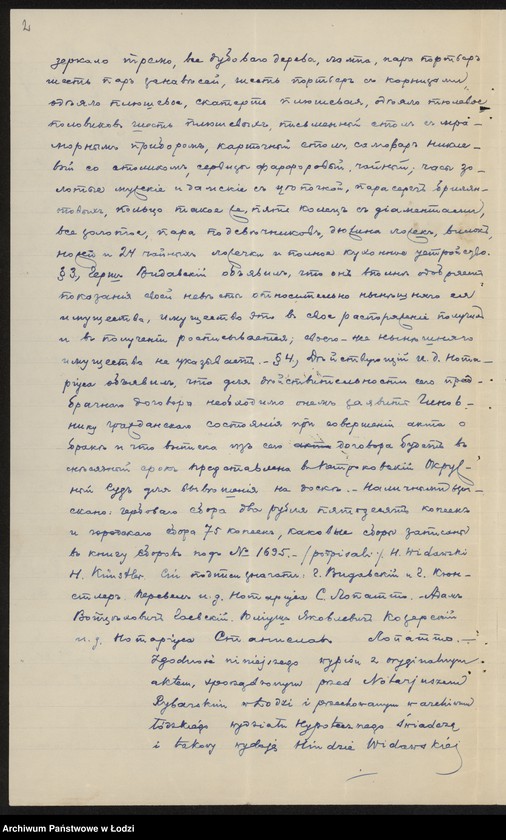 2
зеркало трямо, все дубоваго дерева, лампа, пара портьеръ
шесть паръ занавѣсей, шесть портьеръ съ карнизами
одѣяло плюшевое, скатерть плюшевая, одѣяло тюлевое
половиковъ шесть плюшевыхъ, письменный столъ съ мра-
морнымъ приборомъ, карточный столъ, самоваръ никке-
вый со столикомъ, сервизъ фарфоровый, чайный; часы зо-
лотые мужскіе и дамскіе съ цѣпочкой, пара серегъ брилян-
товыхъ, кольцо такое же, пять колецъ съ діамантами,
все золотое, пара подсвѣчниковъ, дюжина ложекъ, вилокъ,
ножей и 24 чайныхъ ложечки и полное кухонное устройство.
§ 3, Гершъ Видавскій объявилъ, что онъ вполнѣ одобряетъ
показанія своей невѣсты относительно нынѣшняго ея
имущества, имущество это въ свое распоряженіе получилъ
и въ полученіи росписывается; своего-же нынѣшняго
имущества не указываетъ. - § 4, Дѣйствующій и. д. Нота-
ріуса объявилъ, что для дѣйствительности сего пред-
брачнаго договора необходимо о немъ заявить Чинов-
нику гражданскаго состоянія при совершеніи акта о
бракѣ и что выписка изъ сего акта договора будетъ въ
мѣсячный срокъ представлена въ Петроковскій Окруж-
ный Судъ для вывѣшенія на доскѣ. - Наличными взы-
скано: гербоваго сбора два рубля пятьдесятъ копеекъ
и городского сбора 75 копеекъ, каковые сборы записаны
въ книгу сборовъ подъ № 1695. - /podpisali:/ H. Widawski
H. Künstler. Сіи подписи значатъ: Г. Видавскій и Г. Кюн-
стлеръ. Перевелъ и. д. Нотаріуса С. Лопатто. Адамъ
Войцѣховичъ Гаевскій. Юліушъ Яковлевичъ Козерскій
и. д. Нотаріуса Станиславъ Лопатто. -
Zgodność niniejszego wypisu z oryginalnym
aktem, sporządzonym przed Notarjuszem
Rybarskim w Łodzi i przechowanym w archiwum
łódzkiego wydziału Hypotecznego świadczę
i takowy wydaję Hindzie Widawskiej
Archiwum Państwowe w Łodzi